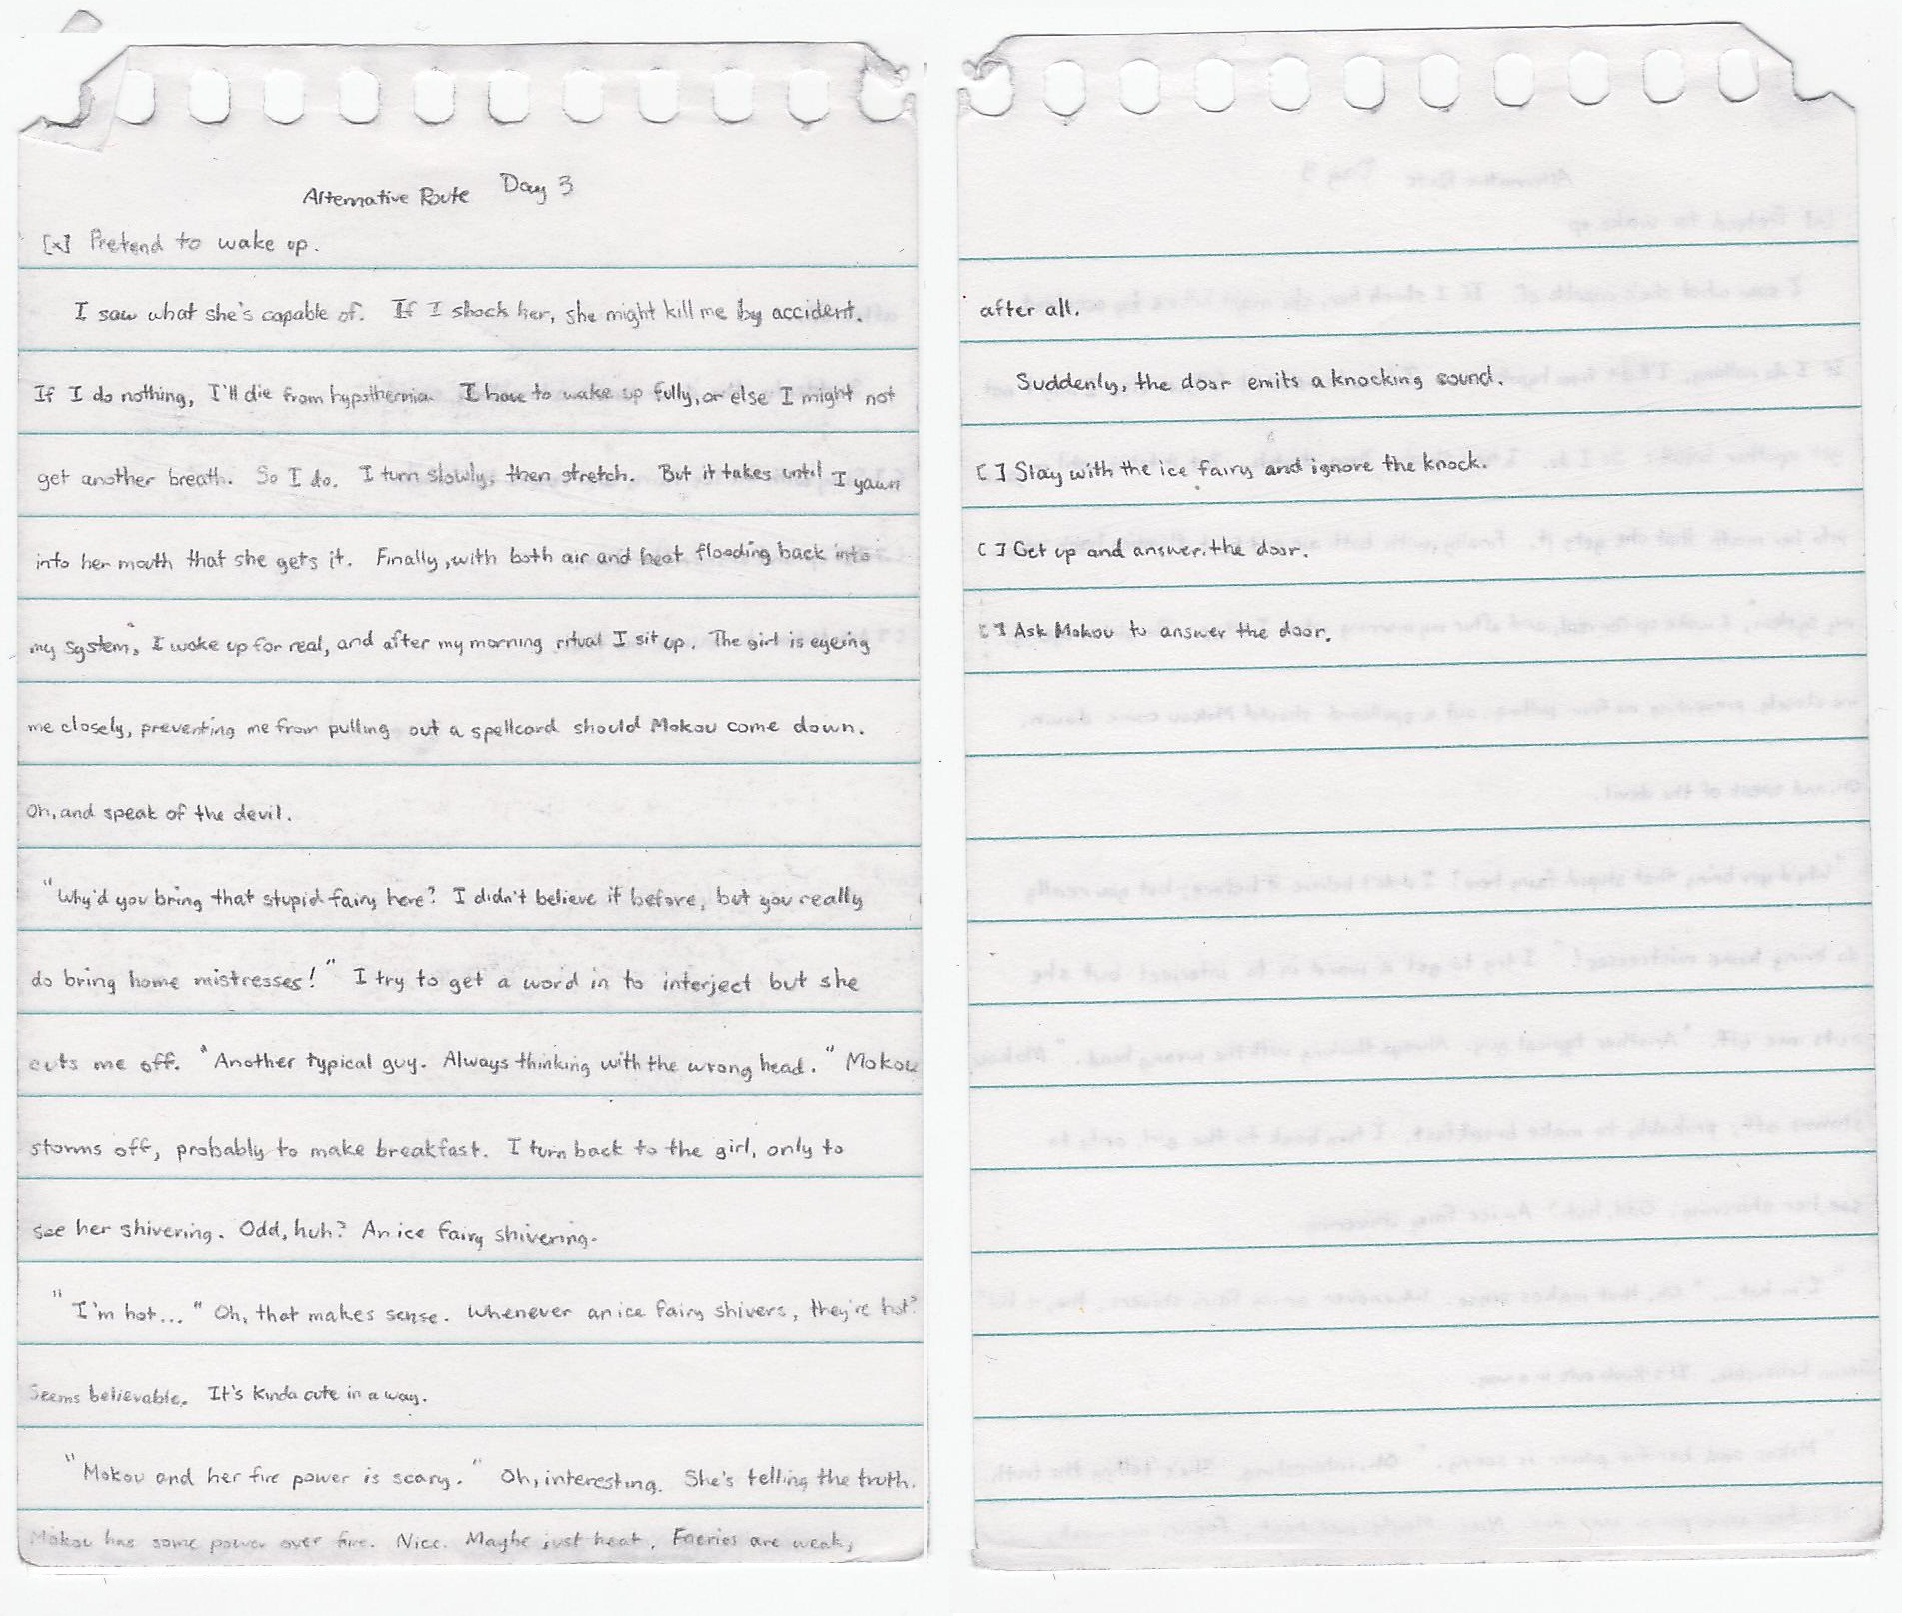 Alternative Route Day 3
[x] Pretend to wake up.
I saw what she's capable of. If I shock her, she might kill me by accident.
If I do nothing, I'll die from hypothermia I have to wake up fully, or else I might not
get another breath. So I do. I turn slowly, then stretch. But it takes until I yawn
into her mouth that she gets it. Finally, with both air and heat flooding back into
my system, I wake up for real, and after my morning ritual I sit up. The girl is eyeing
me closely, preventing me from pulling out a spellcard should Mokou come down.
Oh, and speak of the devil.
"Why'd you bring that stupid fairy here? I didn't believe it before, but you really
do bring home mistresses!" I try to get a word in to interject but she
cuts me off. "Another typical guy. Always thinking with the wrong head." Mokou
storms off, probably to make breakfast. I turn back to the girl, only to
see her shivering. Odd, huh? An ice fairy shivering.
"I'm hot..." Oh, that makes sense. Whenever an ice fairy shivers, they're hot?
Seems believable. It's kinda cute in a way.
"Mokou and her fire power is scary." Oh, interesting. She's telling the truth.
Mokou has some power over fire. Nice. Maybe just heat. Faeries are weak,
after all.
Suddenly, the door emits a knocking sound.
[ ] Stay with the ice fairy and ignore the knock.
[ ] Get up and answer the door.
[ ] Ask Mokou to answer the door.